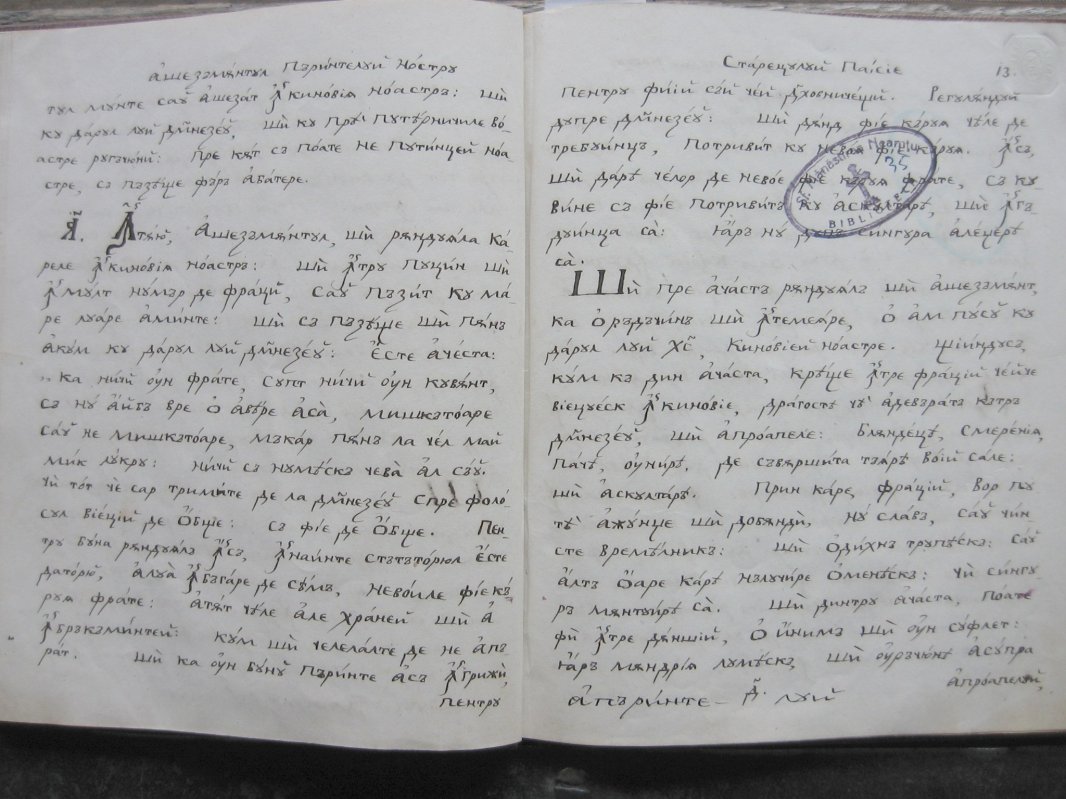 Ашезѫмѫнтул Пъринтелуй Ностру
тул мунте саў ашезат ꙟ киновїѧ ноастръ: шй
ку дарул луй Дм҃незеў, шй ку
астре ругъчюнй: пре кѫт съ поате не путинцей ноа
стре, съ пъзѣще фъръ абатере.
А҃. Ꙟтѫю, Ашезъмѫнтул, шй рѫндуѧла ка
реле ꙟ киновїѧ ноастръ: шй ꙟтру пуцин шй
ꙟ мулт нумър де фрацй, саў пъзит ку ма
ре луаре аминте: шй съ пъзѣще шй пѫнъ
акум ку дарул луй Дм҃незеў: Есте ачеста:
ка ничй оун фрате, супт ничй оун кувѫнт,
съ ну айбъ вре о авѣре аса, мишкътоаре
саў не мишкътоаре, мъкар пѫнъ ла чел май
мик лукру: ничй съ нумѣскъ чева ал съў.
чй тот че сар тримите де ла Дм҃незеў спре фоло
сул вїецїй де обще: съ фїе де обще. Пен
тру буна рѫндуѧлъ ꙟсъ, ꙟнаинте стътъторюл есте
даторю, алуа ꙟбъгаре де сѣмъ, невоиле фїекъ
руѧ фрате: атѫт чѣле але храней шй а
ꙟбръкъминтей: кум шй челелалте де не апъ
рат. Шй ка оун бунў Пъринте асъ ꙟгрижи,
пентру
Старецулуй Паїсїе 13.
пентру фїїй съй чей дх҃овничещй. Регулѫндуй
дупре Дм҃незеў: шй дѫнд фїе къруѧ чѣле де
требуинцъ, потривит ку невоѧ фїе къруѧ. Ꙟсъ,
шй даръ челор де невое фїе къруѧ фрате, съ ку
вине съ фїе потривитъ ку аскултарѣ, шй ꙟгъ
дуинца са: Ꙗръ ну дупъ сингура алецерѣ
са.
Шй пре ачастъ рѫндуѧлъ шй ашезъмѫнт,
ка о ръдъчинъ шй ꙟтемеѧре, о ам пусу ку
дарул луй Хс҃, Киновїей ноастре. Щїиндусъ,
кум къ дин ачаста, крѣще ꙟтре фрацїй чейче
вїецуеск ꙟ киновїе, драгостѣ чѣ адевъратъ кътръ
Дм҃незеў, шй апроапеле: Блѫндецѣ, смеренїѧ,
пачѣ, оунирѣ, де съвѫршита тъѧрѣ воїй сале:
шй аскултарѣ. Прин каре, фрацїй, вор пу
тѣ ажунце шй добѫнди, ну славъ, саў чин
сте времѣлникъ: шй одихнъ трупѣскъ: саў
алтъ оаре карѣ нълучире оменѣскъ: чй сингу
ръ мѫнтуирѣ са. Шй динтру ачаста, поате
фй ꙟтре дѫншїй, о инимъ шй оун суфлет:
Ꙗръ мѫндрїѧ лумѣскъ, шй оуръчюнѣ асупра
апроапелуй,
St. Mănăstirea Neamțu
BIBLIOTECA